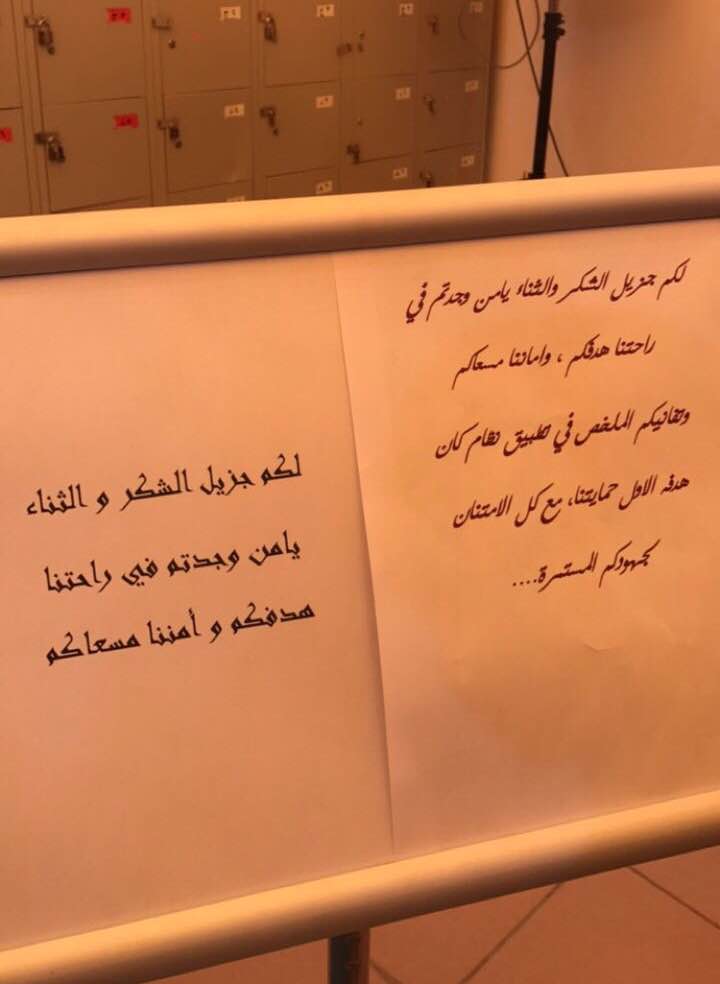 لكم جزيل الشكر والثناء يامن وجدتم في
راحتنا هدفكم ، واماننا مسعاكم
وتفانيكم الملخص في تطبيق نظام كان
هدفه الاول حمايتنا، مع كل الامتنان
لجهودكم المستمرة....
لكم جزيل الشكر و الثناء
يامن وجدتم في راحتنا
هدفكم و أمننا مسعاكم